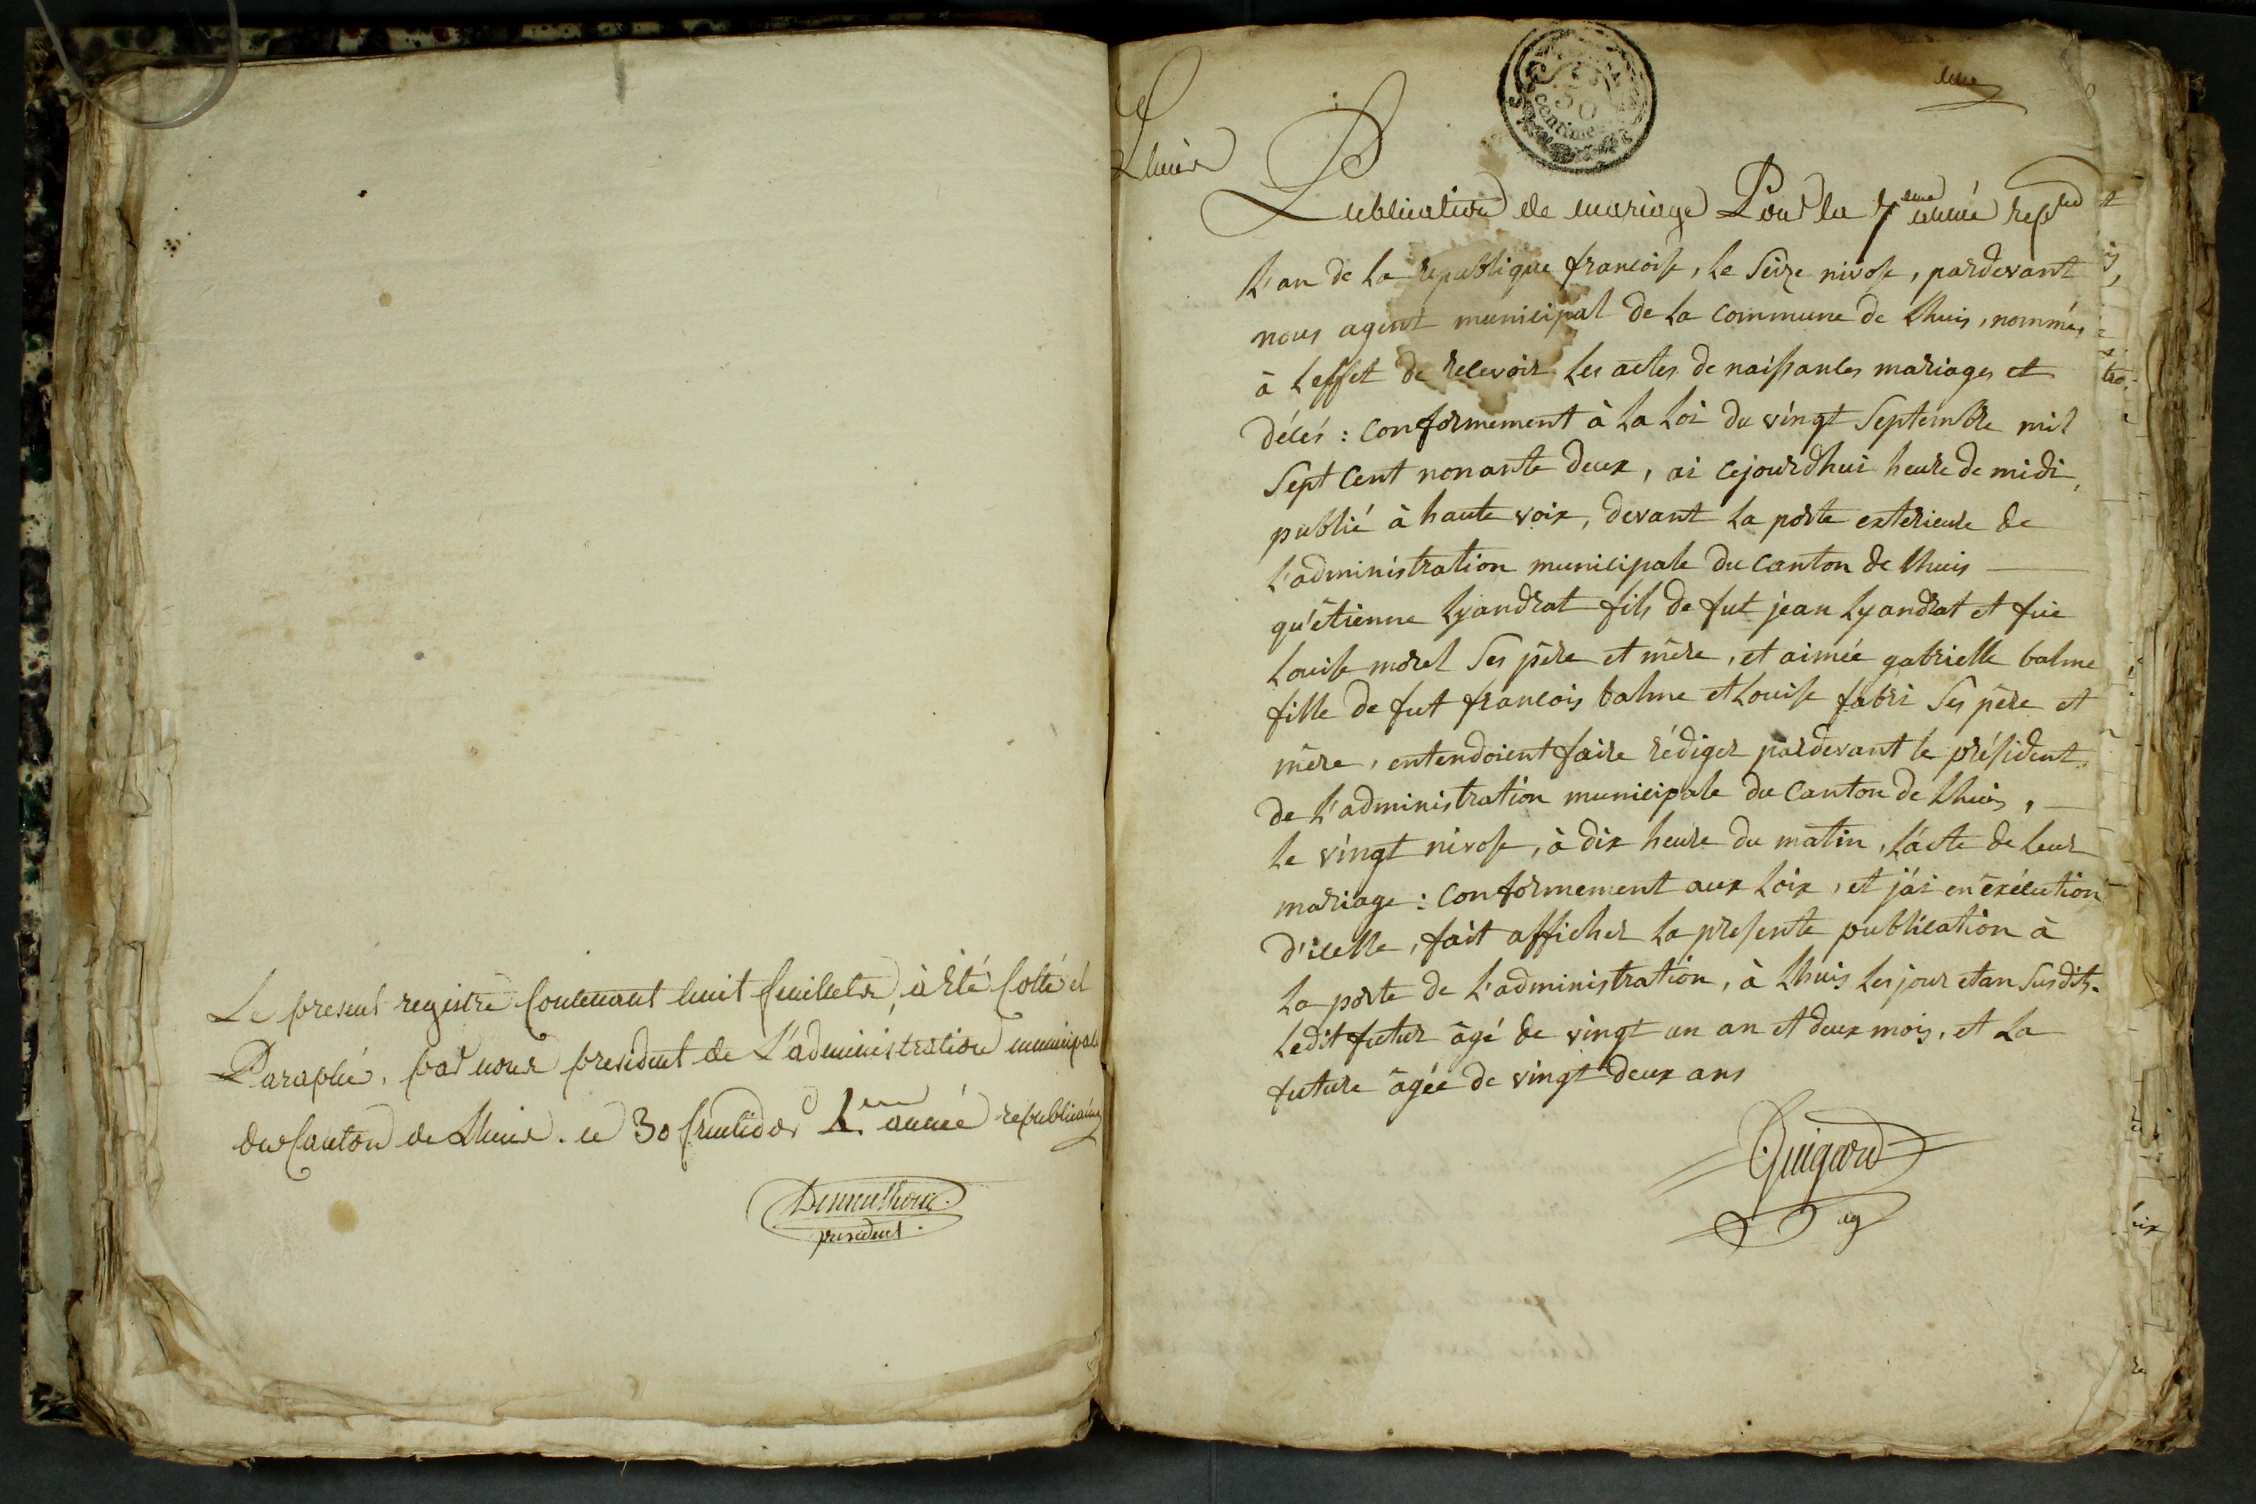 Le present registre Contenant huit feuillets, à été Cotté et
Paraphé, par nous president de L'administration municipale
du Canton de Lhuis. le 30 fructidor 6.eme année republicaine
president.
Lhuis
50
centimes
Publication de mariage Pour la 7eme année repne
L'an de La republique francoise, Le Seize nivose, pardevant
nous agent municipal de La Commune de Lhuis, nommés
à Leffet de recevoir Les actes de naissances mariages et
décés : Conformement à La Loi du vingt Septembre mil
Sept Cent nonante deux, ai cejourdhui heure de midi,
publié à haute voix, devant La porte exterieure de
L'administration municipale du Canton de Lhuis
qu'étienne Lyandrat fils de fut jean Lyandrat et fue
Louise morel Ses père et mère, et aimée gabrielle balme
fille de fut francois balme et Louise fabri Ses père et
mère, entendoient faire rédiger pardevant le président
de L'administration municipale du Canton de Lhuis,
Le vingt nivose, à dix heure du matin, L'acte de Leur
mariage : Conformement aux Loix, et j'ai en exécution
d'icelle, fait afficher La presente publication à
La porte de L'administration, à Lhuis Les jour et an Susdits.
Ledit futur âgé de vingt un an et deux mois, et La
future âgée de vingt deux ans
Guigard
ag